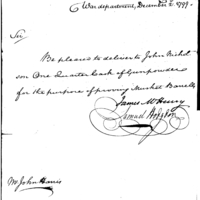 War department, December 2. 1799.
Sir
Be pleased to deliver to John Nichol
son One Quarter Cask of Gunpowder
for the purpose of proving Musket Barrells
James McHenry
Samuel Hodgdon
Mr John Harris